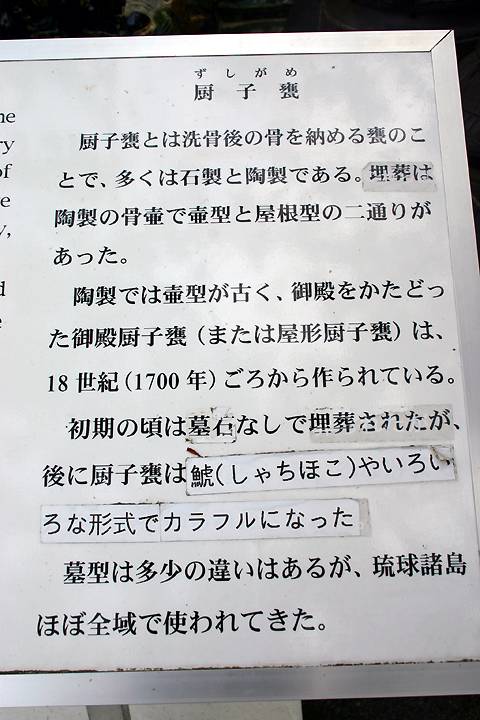 ずしがめ
厨子甕
厨子甕とは洗骨後の骨を納める甕のこ
とで、多くは石製と陶製である。埋葬は
陶製の骨壷で壷型と屋根型の二通りが
あった。
陶製では壷型が古く、御殿をかたどっ
た御殿厨子甕（または屋形厨子甕）は、
18世紀（1700年）ごろから作られている。
初期の頃は墓石なしで埋葬されたが、
後に厨子甕は鯱(しゃちほこ)やいろい
ろな形式でカラフルになった
墓型は多少の違いはあるが、琉球諸島
ほぼ全域で使われてきた。